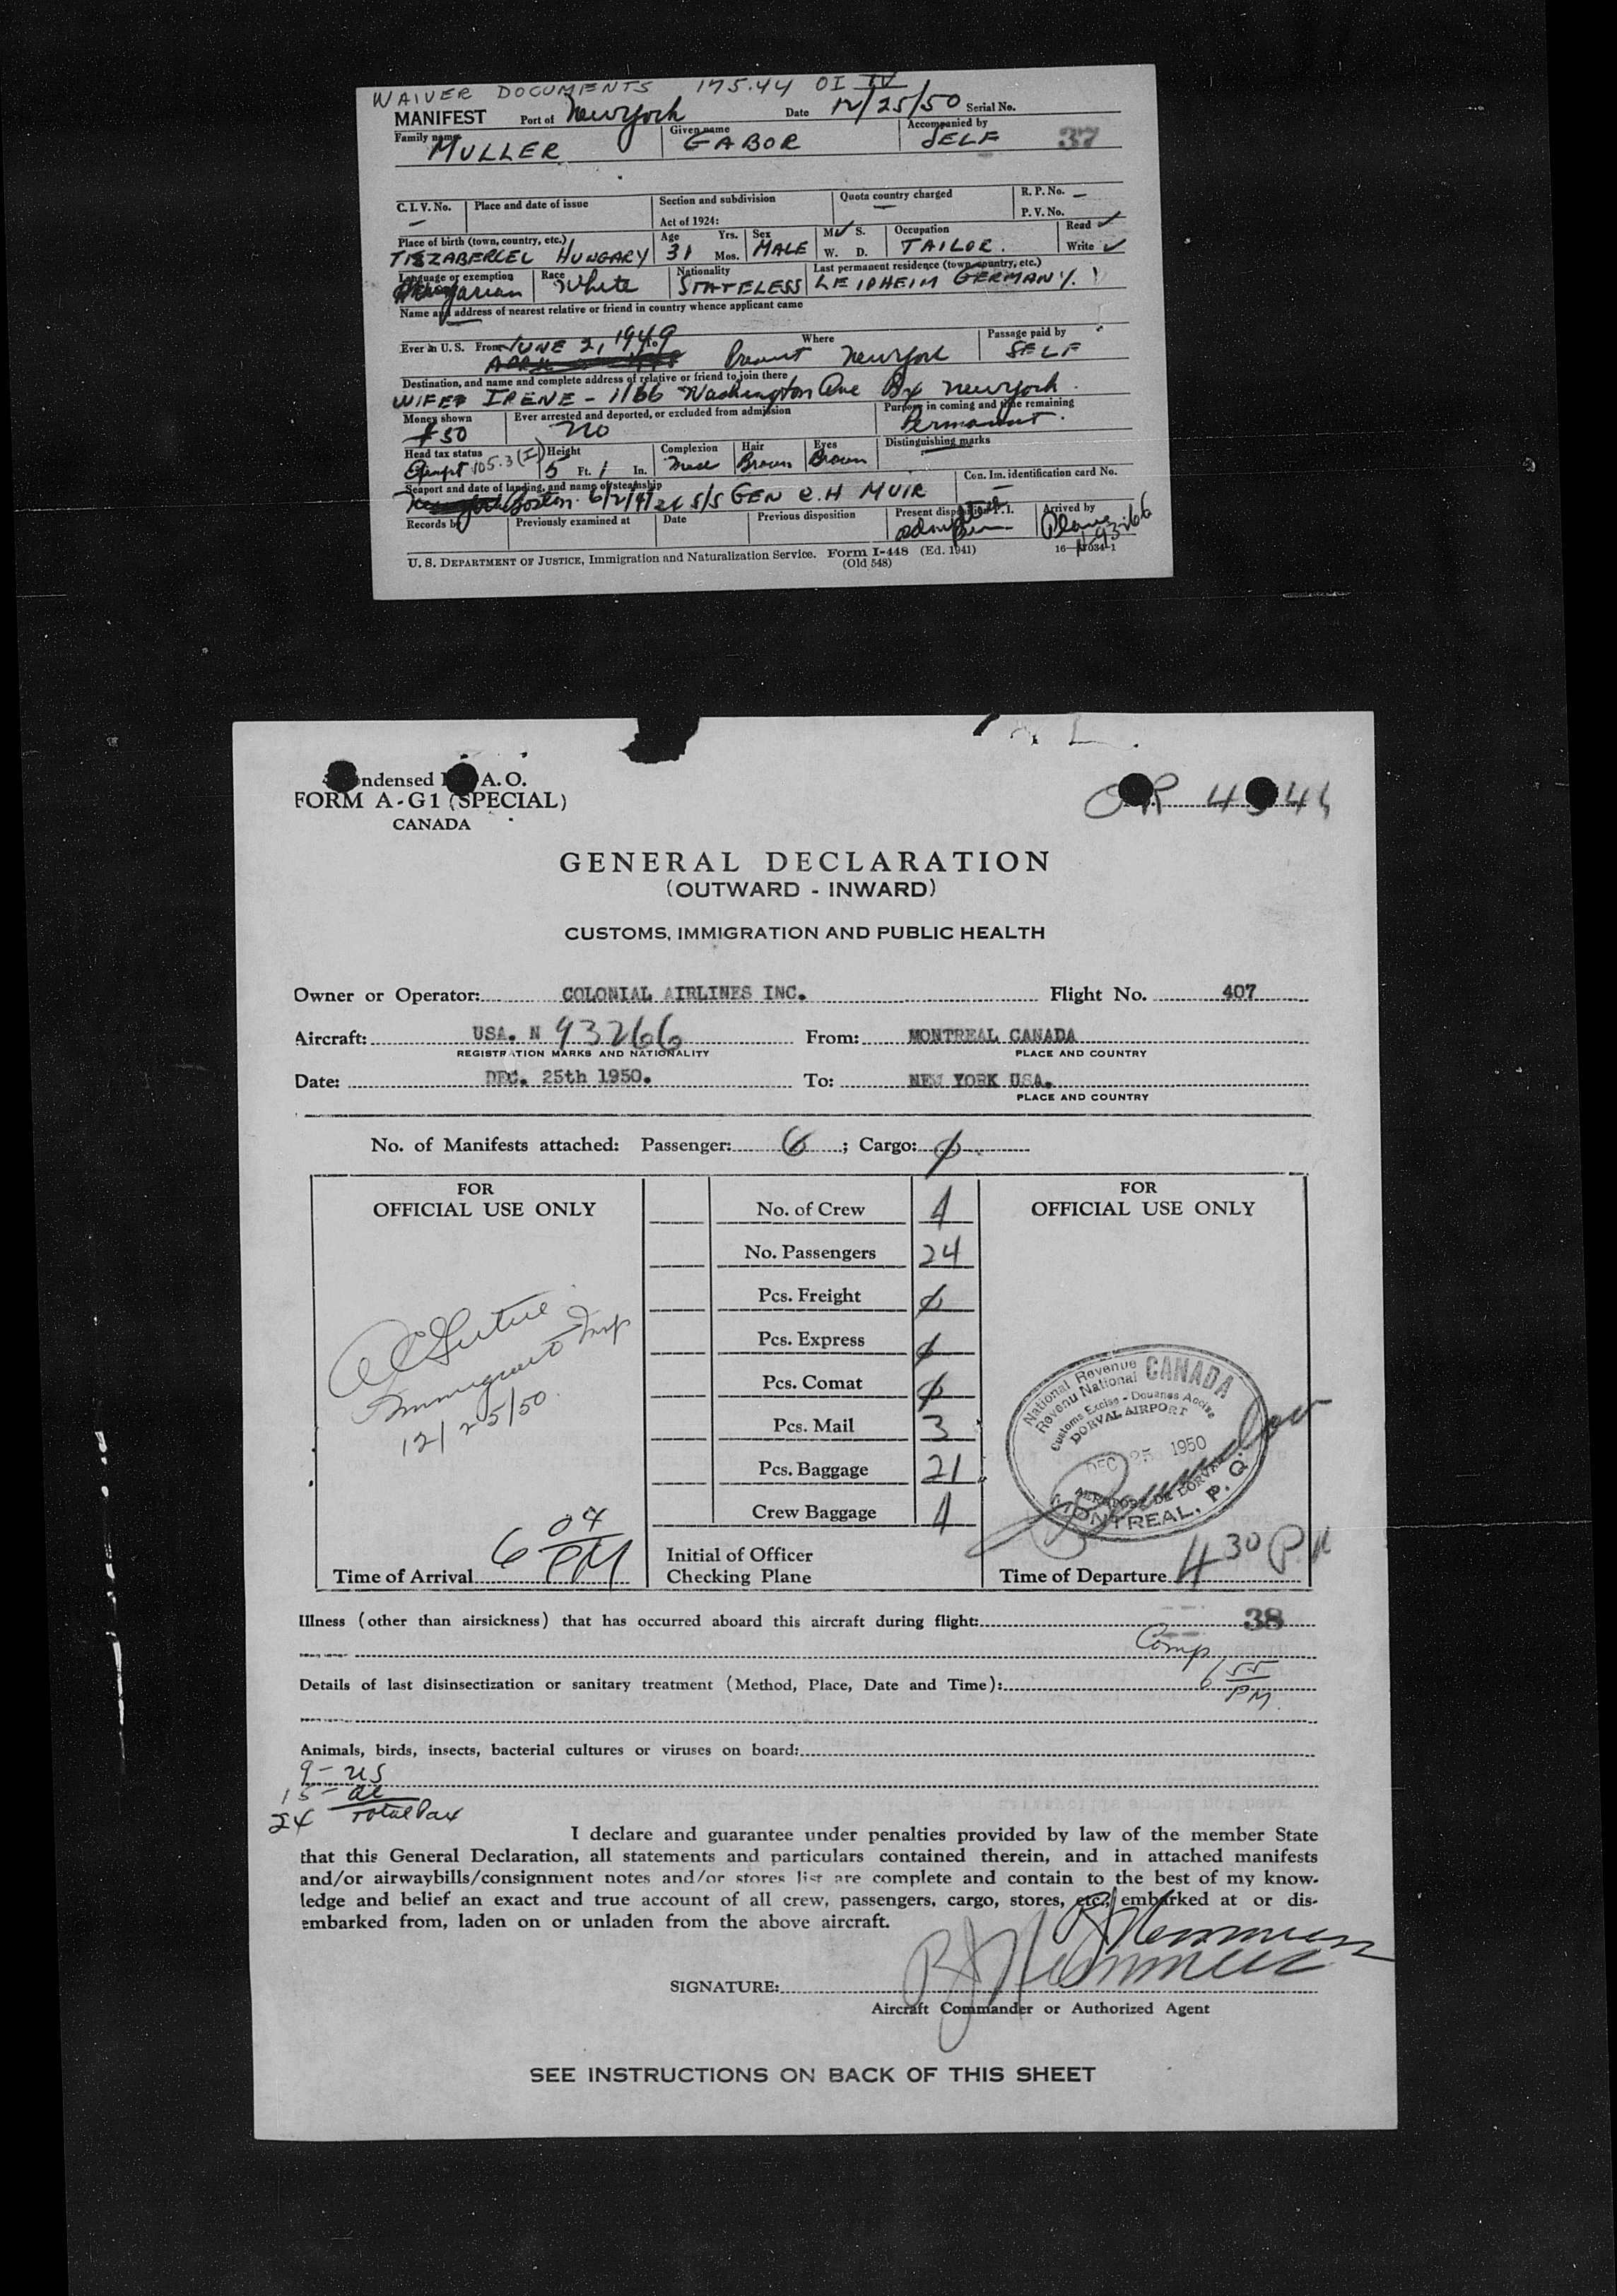 WAIVER DOCUMENTS 175.44 OI IV
MANIFEST Port of New York Date 12/25/50 Serial No.
Family name MULLER Given name GABOR Accompanied by SELF 37
C. I. V. No. — Place and date of issue Section and subdivision Quota country charged — R. P. No. —
Act of 1924: P. V. No.
Place of birth (town, country, etc.) Age Yrs. Sex M ✓ S. Occupation Read ✓
TISZABERCEL HUNGARY 31 Mos. MALE W. D. TAILOR. Write ✓
Language or exemption Race Nationality Last permanent residence (town, country, etc.)
Hungarian White STATELESS LEIPHEIM GERMANY.
Name and address of nearest relative or friend in country whence applicant came
Ever in U. S. From JUNE 2, 1949 To Where Passage paid by
Present New York SELF
Destination, and name and complete address of relative or friend to join there
WIFE IRENE - 1166 Washington Ave Bx New York.
Money shown Ever arrested and deported, or excluded from admission Purpose in coming and time remaining
$50 No Permanent.
Head tax status Height Complexion Hair Eyes Distinguishing marks
Exempt 105.3 (I) 5 Ft. 1 In. Brown Brown
Seaport and date of landing, and name of steamship Con. Im. identification card No.
Boston. S/S GEN C.H MUIR —
Records by Previously examined at Date Previous disposition Present disposition P. I. Arrived by
Plane N93266
U. S. DEPARTMENT OF JUSTICE, Immigration and Naturalization Service. Form I-448 (Ed. 1941)
(Old 548)
ndensed A. O.
FORM A-G1 (SPECIAL)
CANADA
GENERAL DECLARATION
(OUTWARD - INWARD)
CUSTOMS, IMMIGRATION AND PUBLIC HEALTH
Owner or Operator: COLONIAL AIRLINES INC. Flight No. 407
Aircraft: USA. N 93266 From: MONTREAL CANADA
REGISTRATION MARKS AND NATIONALITY PLACE AND COUNTRY
Date: DEC. 25th 1950. To: NEW YORK USA.
PLACE AND COUNTRY
No. of Manifests attached: Passenger: 6 ; Cargo: 0
FOR
OFFICIAL USE ONLY
No. of Crew 4
No. Passengers 24
Pcs. Freight 0
Pcs. Express 0
Pcs. Comat 0
Pcs. Mail 3
Pcs. Baggage 21
Crew Baggage 4
Immigrant Insp
12/25/50
Time of Arrival 6 04 PM
Initial of Officer
Checking Plane
FOR
OFFICIAL USE ONLY
National Revenue CANADA
Revenu National
Customs Excise - Douanes Accise
DORVAL AIRPORT
DEC 25 1950
AEROPORT DE DORVAL
MONTREAL, P. Q.
Time of Departure 4 30 P.M
Illness (other than airsickness) that has occurred aboard this aircraft during flight: 38
Comp
Details of last disinsectization or sanitary treatment (Method, Place, Date and Time): 6 55 PM
Animals, birds, insects, bacterial cultures or viruses on board:
9 - US
15 - al
24 Total Pax
I declare and guarantee under penalties provided by law of the member State
that this General Declaration, all statements and particulars contained therein, and in attached manifests
and/or airwaybills/consignment notes and/or stores list are complete and contain to the best of my know-
ledge and belief an exact and true account of all crew, passengers, cargo, stores, etc., embarked at or dis-
embarked from, laden on or unladen from the above aircraft.
SIGNATURE:
Aircraft Commander or Authorized Agent
SEE INSTRUCTIONS ON BACK OF THIS SHEET